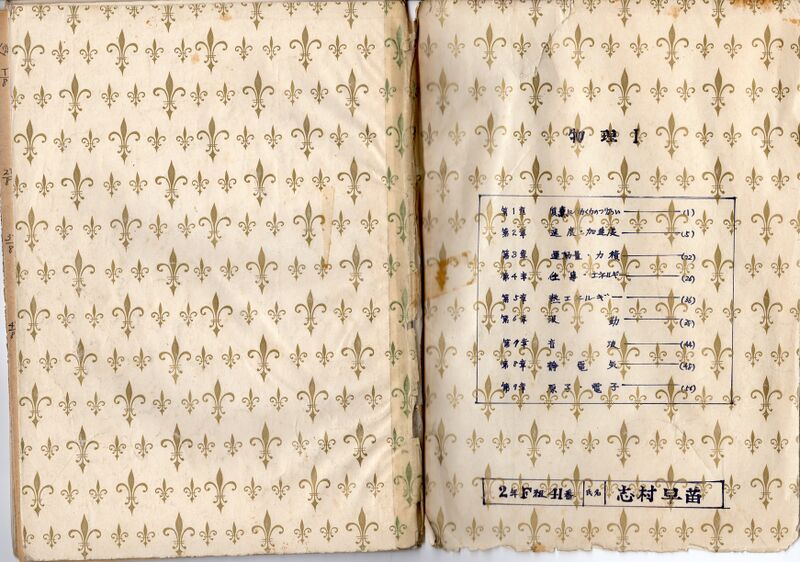 物理Ⅰ
第1章 (1)
第2章 速度・加速度 (5)
第3章 運動量・力積 (22)
第4章 仕事・エネルギー (26)
第5章 熱エネルギー (36)
第6章 波動
第7章 音波 (44)
第8章 静電気 (48)
第9章 原子電子
2年F組41番 氏名 志村早苗